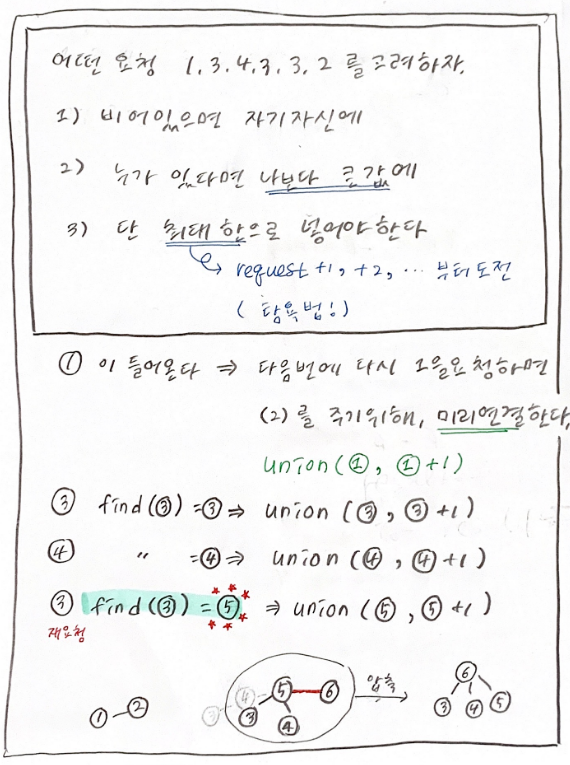 어떤 요청 1.3.4.3.3.2 를 고려하자.
1) 비어있으면 자기자신에
2) 누가 있다면 나보다 큰값에
3) 단 최대 합으로 넣어야한다
request +1, +2, ... 부터 도전
(탐욕법!)
① 이 들어온다 ⇒ 다음번에 다시 1을요청하면
(2) 를 주기위해, 미리연결한다.
union(①, ①+1)
③ find(③)=③ ⇒ union (③, ③+1)
④ " =④ ⇒ union (④, ④+1)
③ find(③) = ⑤ ⇒ union (⑤, ⑤+1)
재요청
① ② ③ ④ ⑤ ⑥ 압축 ⑥
③ ④ ③ ④ ⑤